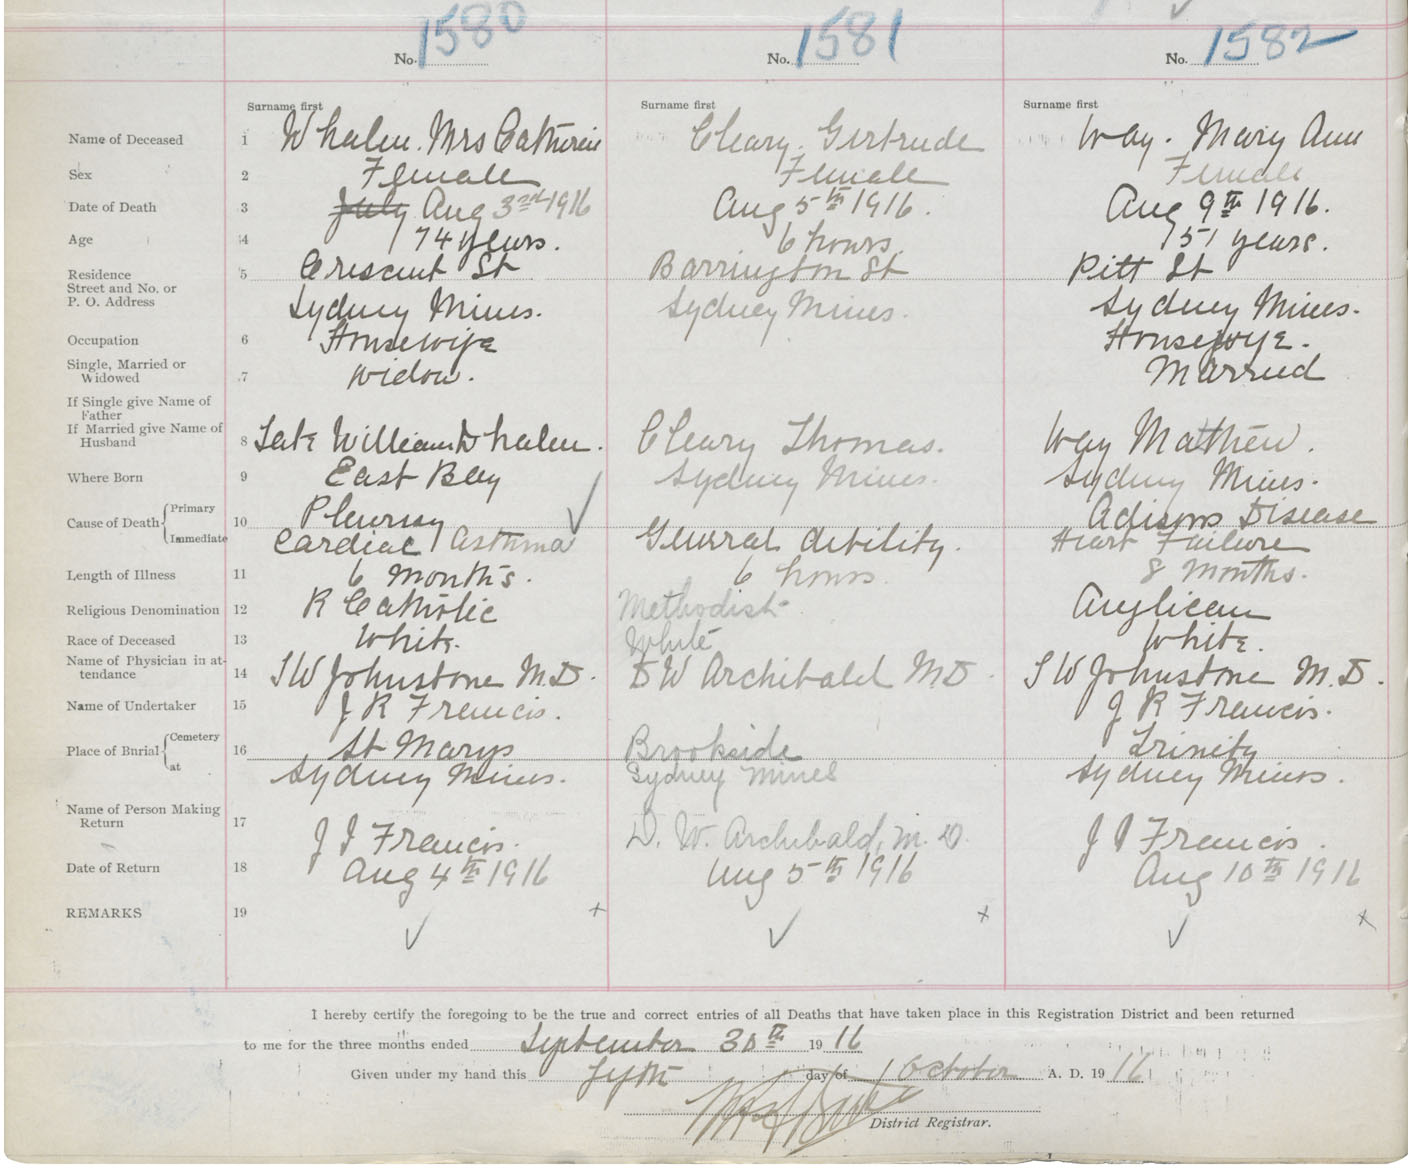 No. 1580 No. 1581 No. 1582
Surname first Surname first Surname first
Name of Deceased 1 Whalen. Mrs Catherine Cleary. Gertrude Way. Mary Ann
Sex 2 Female Female Female
Date of Death 3 July Aug 3rd 1916 Aug 5th 1916. Aug 9th 1916.
Age 4 74 years. 6 hours. 51 years.
Residence 5 Crescent St Barrington St Pitt St
Street and No. or
P. O. Address Sydney Mines. Sydney Mines. Sydney Mines.
Occupation 6 Housewife Housewife.
Single, Married or
Widowed 7 Widow. Married
If Single give Name of
Father
If Married give Name of
Husband 8 Late William Whalen. Cleary Thomas. Way Mathew.
Where Born 9 East Bay Sydney Mines. Sydney Mines.
Cause of Death Primary 10 Pleursay Adisons Disease
Immediate Cardiac Asthma General debility. Heart Failure
Length of Illness 11 6 months. 6 hours. 8 months.
Religious Denomination 12 R Catholic Methodist Anglican
Race of Deceased 13 White. White White.
Name of Physician in at-
tendance 14 J W Johnstone M.D. D W Archibald M D. J W Johnstone M.D.
Name of Undertaker 15 J R Francis. J R Francis.
Place of Burial Cemetery 16 St Marys Brookside Trinity
at Sydney Mines. Sydney Mines Sydney Mines.
Name of Person Making
Return 17 J J Francis. D. W. Archibald, M. D. J J Francis.
Date of Return 18 Aug 4th 1916 Aug 5th 1916 Aug 10th 1916
REMARKS 19
I hereby certify the foregoing to be the true and correct entries of all Deaths that have taken place in this Registration District and been returned
to me for the three months ended September 30th 1916
Given under my hand this day of October A. D. 1916
District Registrar.